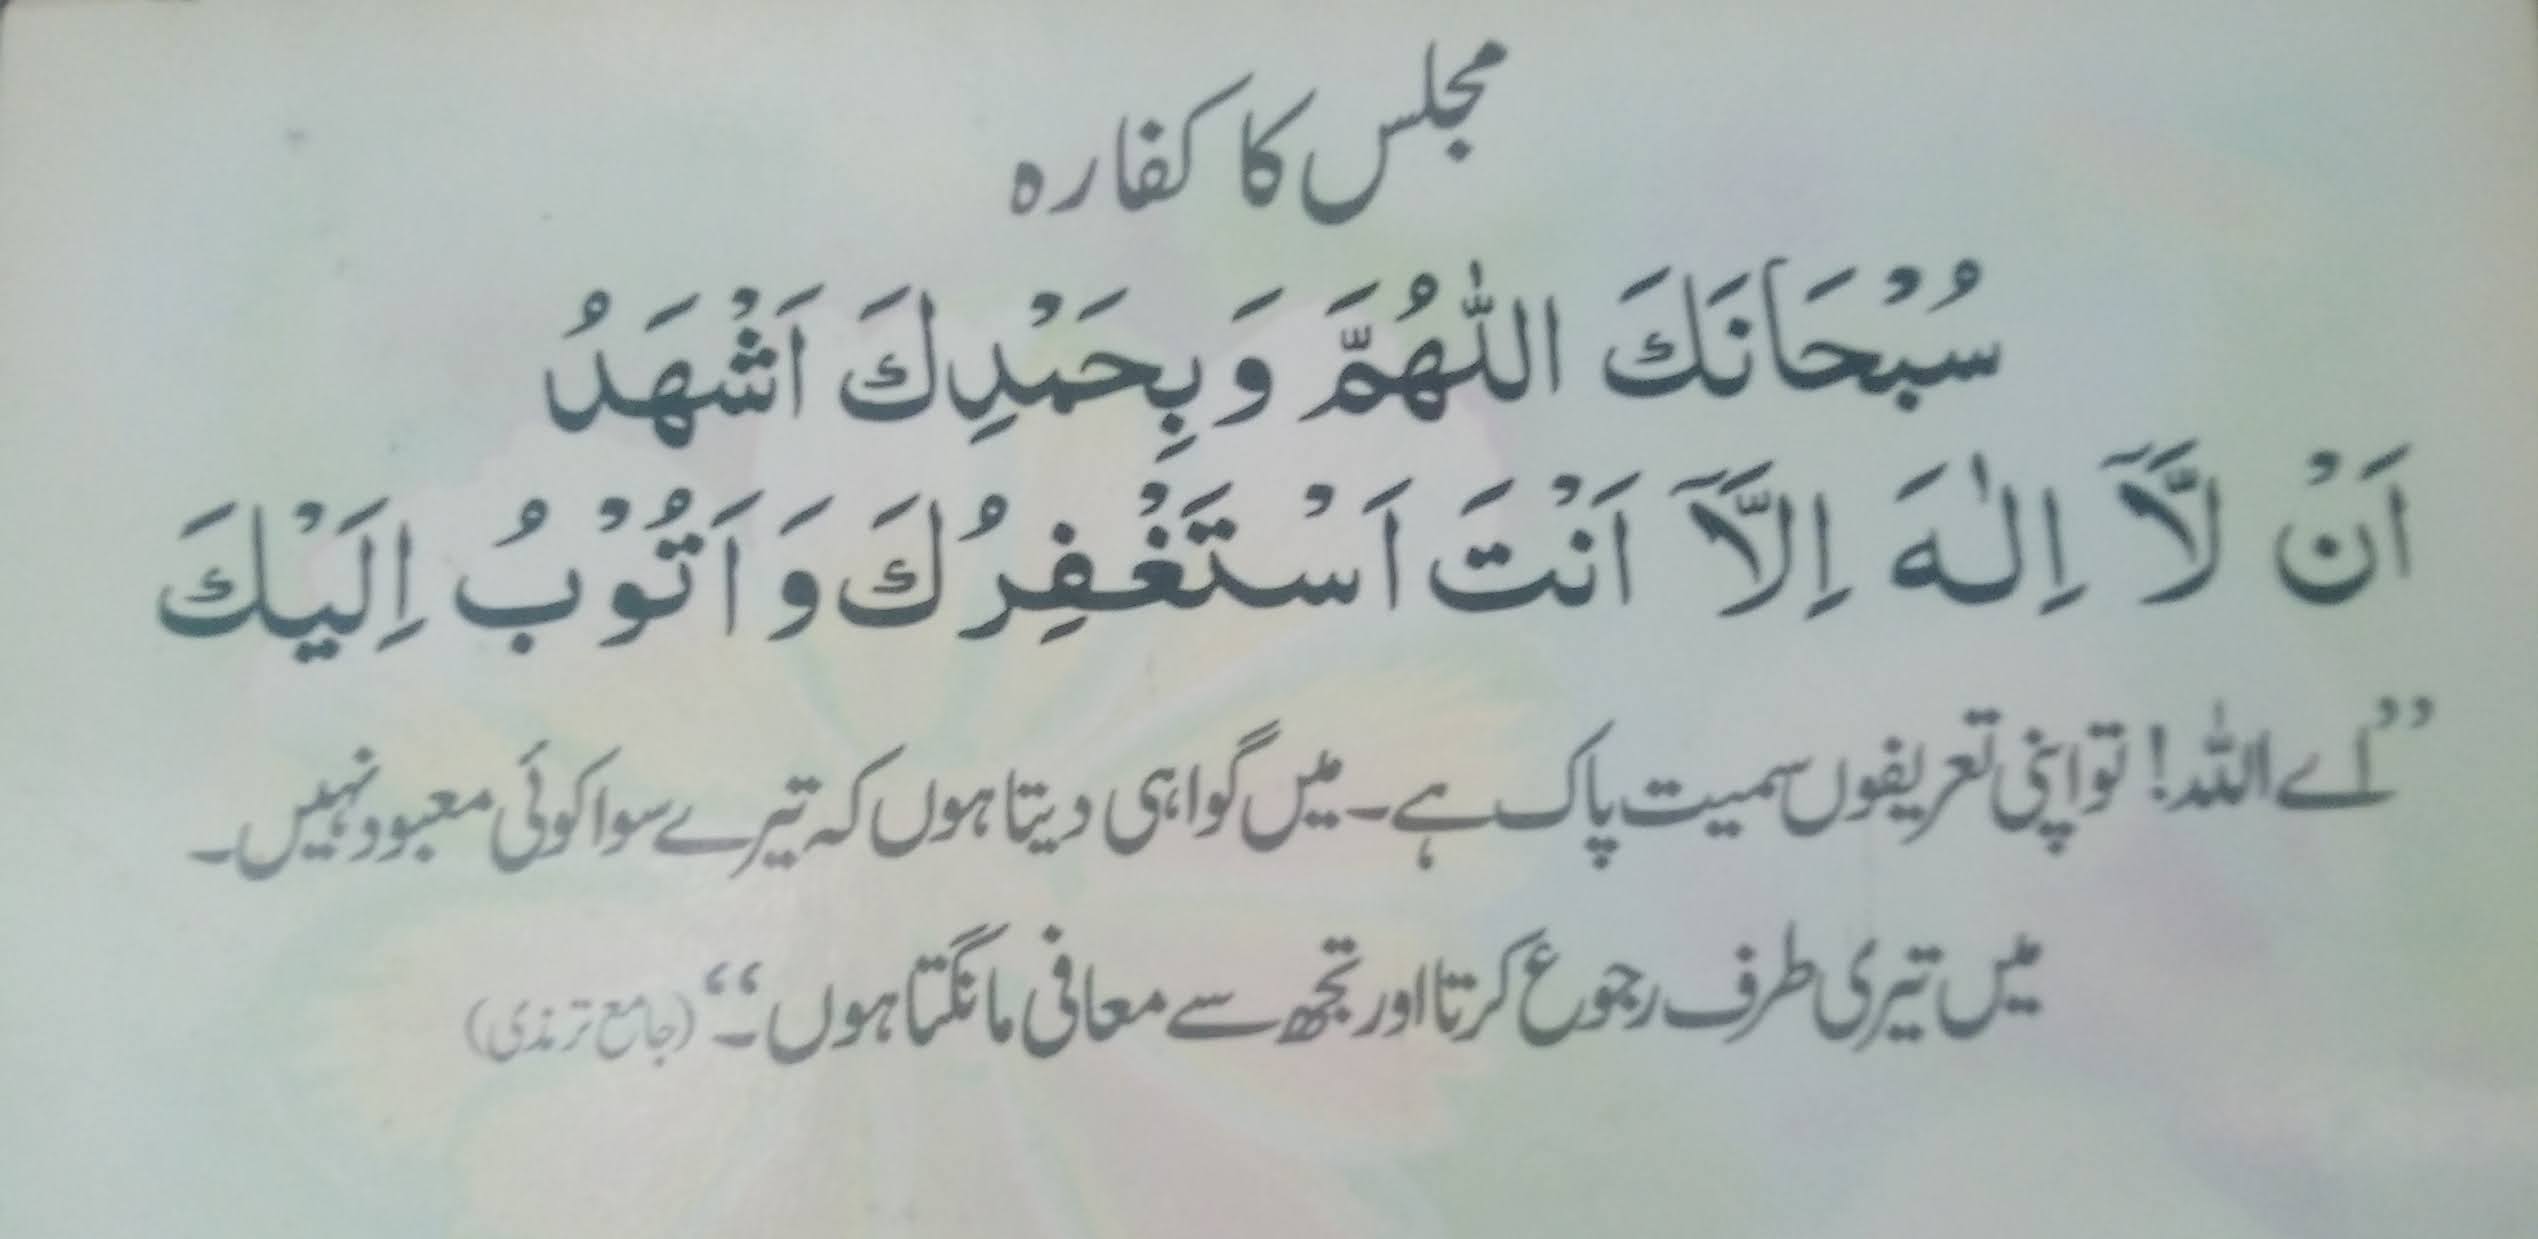 مجلس کا کفارہ
سُبْحَانَكَ اللّٰهُمَّ وَبِحَمْدِكَ اَشْهَدُ
اَنْ لَّآ اِلٰهَ اِلَّآ اَنْتَ اَسْتَغْفِرُكَ وَ اَتُوْبُ اِلَيْكَ
”اے اللہ! تو اپنی تعریفوں سمیت پاک ہے۔ میں گواہی دیتا ہوں کہ تیرے سوا کوئی معبود نہیں۔
میں تیری طرف رجوع کرتا اور تجھ سے معافی مانگتا ہوں۔“ (جامع ترمذی)